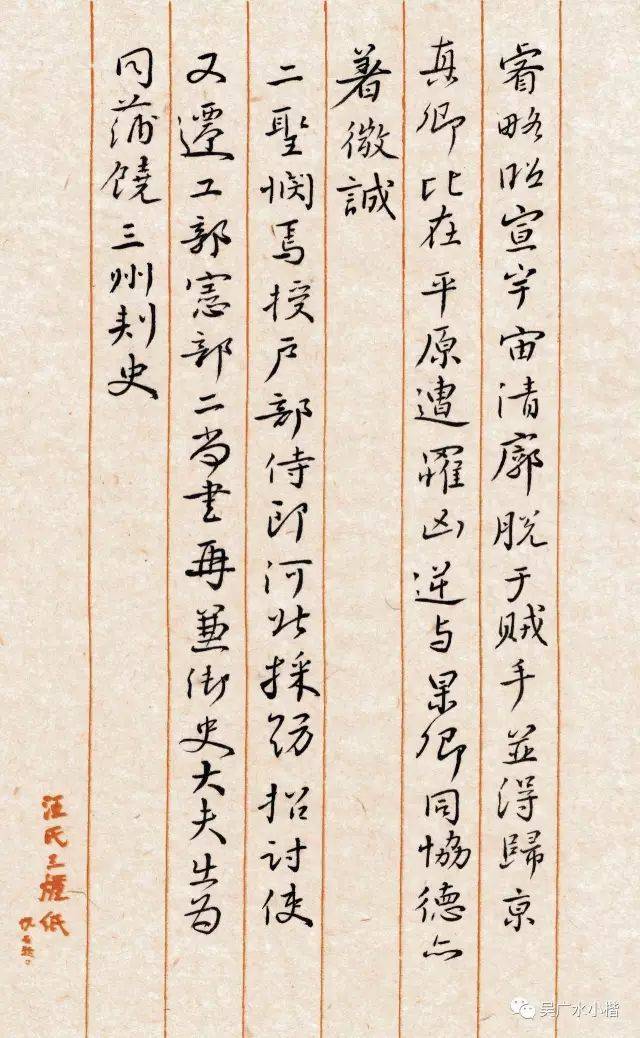 睿略昭宣宇宙清廓脱于贼手並得歸京
真卿比在平原遭罹凶逆与杲卿同協德亦
著微誠
二聖憫焉授户部侍郎河北採訪招討使
又遷工部憲部二尚書再兼御史大夫出为
同蒲饒三州刾史
汪氏三槐紙
吴广水小楷